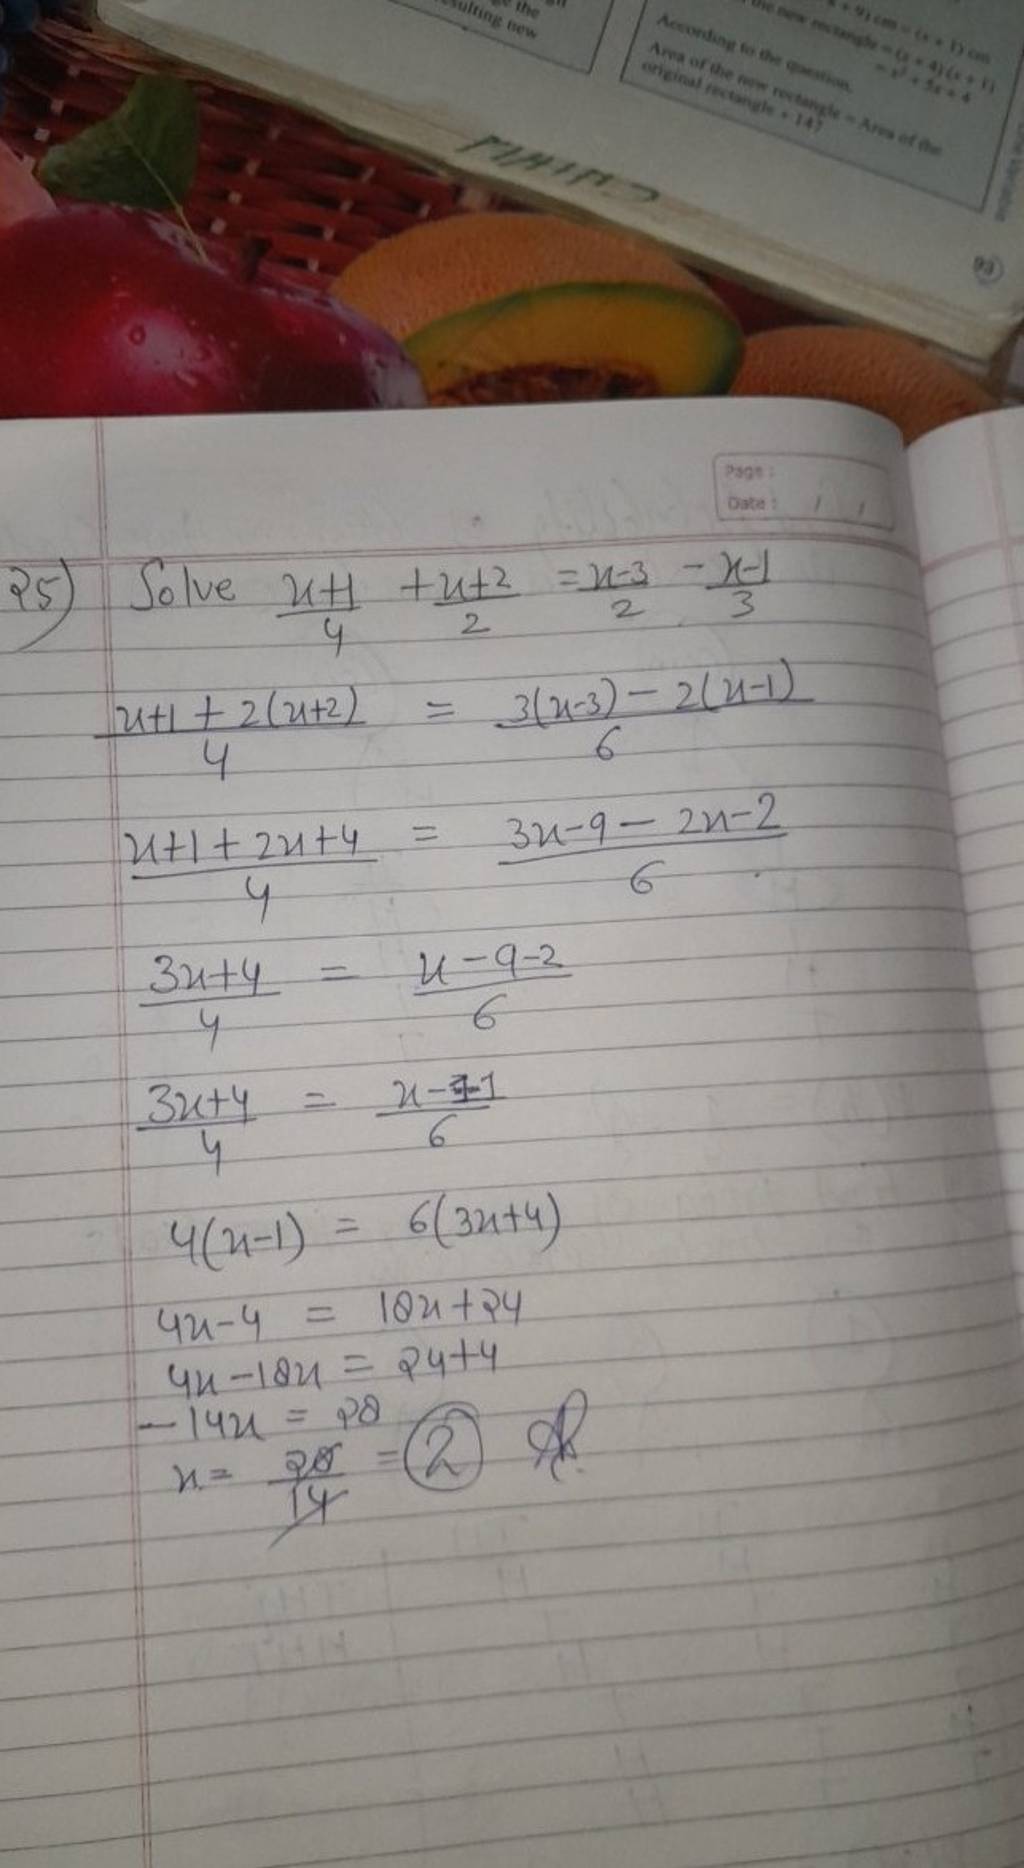 sulting new
x + 9) cm = (x + 1) cm
the new rectangle = (x + 4) (x + 1)
= x² + 5x + 4
According to the question,
Area of the new rectangle = Area of the
original rectangle + 147
93
Page :
Date : / /
25) Solve x+1/4 + x+2/2 = x-3/2 - x-1/3
x+1 + 2(x+2)/4 = 3(x-3) - 2(x-1)/6
x+1 + 2x+4/4 = 3x-9 - 2x-2/6
3x+4/4 = x-9-2/6
3x+4/4 = x-1/6
4(x-1) = 6(3x+4)
4x-4 = 18x+24
4x-18x = 24+4
-14x = 28
x = 28/14 = 2